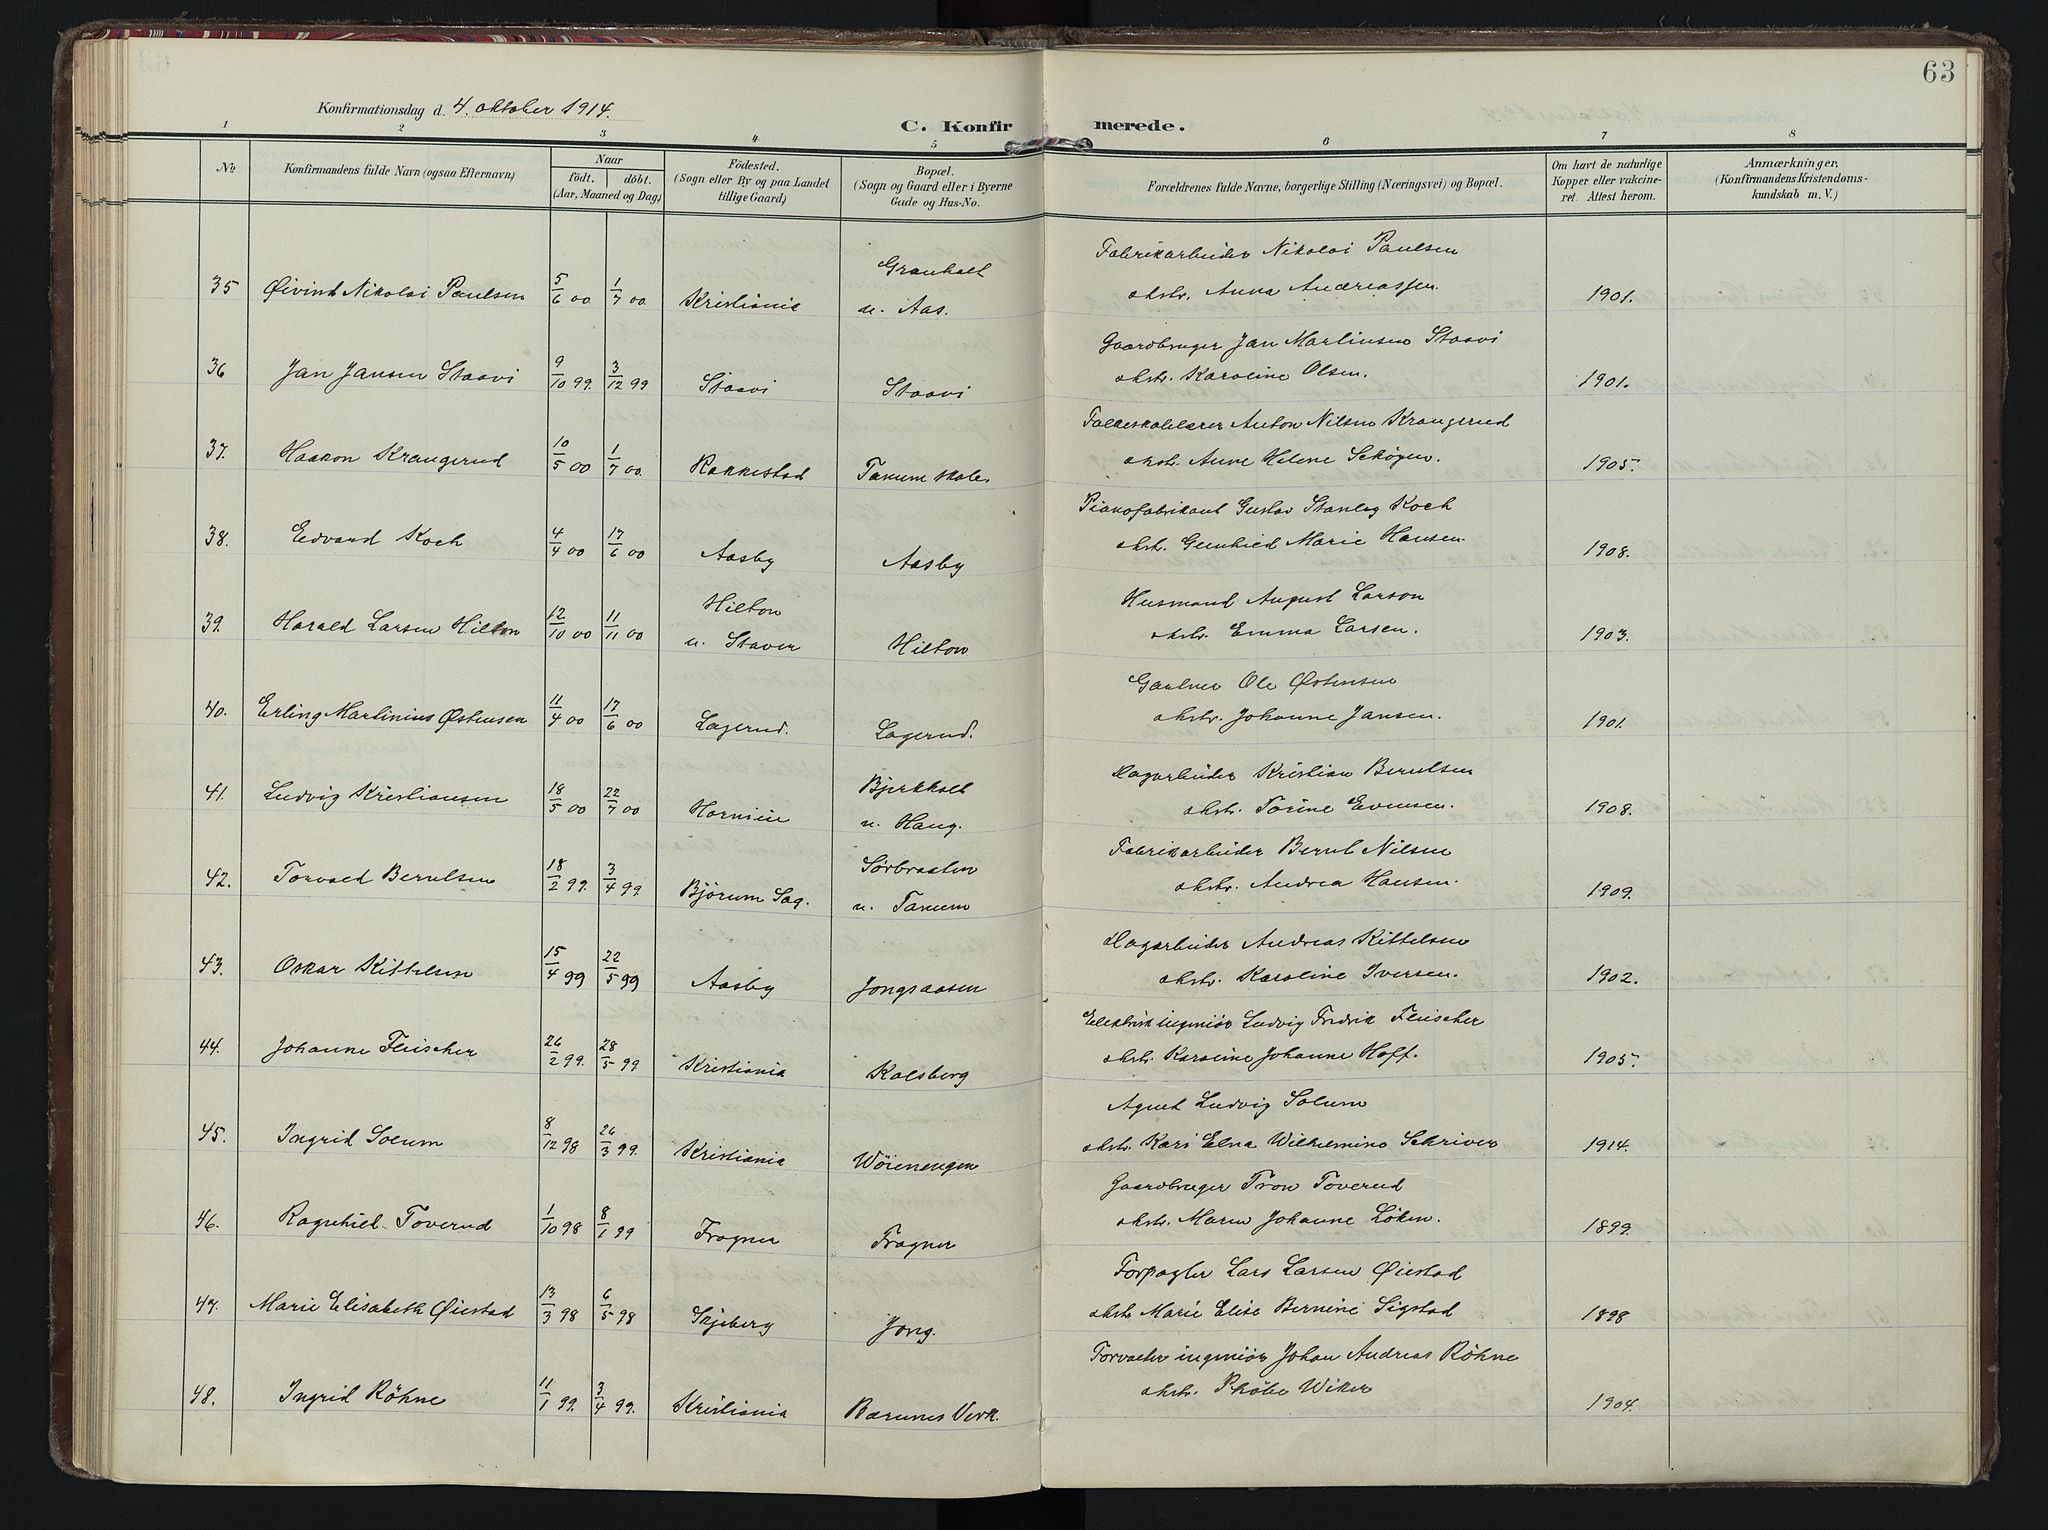 63
Konfirmationsdag d. 4. oktober 1914.
C. Konfirmerede.
1 2 3 4 5 6 7 8
No
Konfirmandens fulde Navn (ogsaa Efternavn)
Naar
født. døbt.
(Aar, Maaned og Dag)
Fødested.
(Sogn eller By og paa Landet
tillige Gaard)
Bopæl.
(Sogn og Gaard eller i Byerne
Gade og Hus-No.
Forældrenes fulde Navne, borgerlige Stilling (Næringsvei) og Bopæl.
Om havt de naturlige
Kopper eller vakcine-
ret. Attest herom.
Anmærkninger,
(Konfirmandens Kristendoms-
kundskab m. V.)
35 Øivind Nikolai Paulsen 5/6 00 1/7 00. Kristiania
Granholt
u. Aas.
Fabrikarbeider Nikolai Paulsen
ohstr. Anna Andreassen. 1901.
36 Jan Jansen Staavi 9/10 99. 3/12 99 Staavi Staavi
Gaardbruger Jan Martinsen Staavi
ohstr. Karoline Olsen. 1901.
37. Haakon Krangerud 10/5 00 1/7 00. Rakkestad Tanum skole.
Folkeskolelærer Anton Nilsen Krangerud
ohstr. Anne Helene Schøyen. 1905.
38. Edvard Koch 4/4 00 17/6 00 Aasby Aasby
Pianofabrikant Gustav Stanley Koch
ohstr. Gunhild Marie Hansen. 1908.
39. Harald Larsen Hilton 12/10 00 11/11 00
Hilton
u. Staver
Hilton
Husmand August Larson
ohstr. Emma Larsen. 1903.
40. Erling Martinius Østensen 11/4 00 17/6 00 Lagerud. Lagerud.
Gartner Ole Østensen
ohstr. Johanne Jansen. 1901.
41. Ludvig Kristiansen 18/5 00 22/7 00 Hornieie
Bjerkholt
u. Haug.
Dagarbeider Kristian Berntsen
ohstr. Torine Evensen. 1908.
42. Torvald Berntsen 18/2 99. 3/4 99. Bjørum Sag.
Sørbraaten
u. Tanum
Fabrikarbeider Bernt Nilsen
ohstr. Andrea Hansen. 1909.
43. Oskar Kittelsen 15/4 99 22/5 99 Aasby Jongsaasen
Dagarbeider Andreas Kittelsen
ohstr. Karoline Iversen. 1902.
44. Johanne Fleischer 26/2 99. 28/5 99 Kristiania Kolsberg
Elektrisk ingeniør Ludvig Fredrik Fleischer
ohstr. Karoline Johanne Hoff. 1905.
45. Ingrid Solum 8/12 98 26/3 99. Kristiania Wøienengen
Agent Ludvig Solum
ohstr. Kari Elna Wilhelmine Schriver 1914.
46. Ragnhild Toverud 1/10 98 8/1 99 Frogner Frogner
Gaardbruger Tron Toverud
ohstr. Maren Johanne Løken. 1899.
47. Marie Elisabeth Øiestad 13/3 98 6/5 98 Skjeberg Jong.
Forpagter Lars Larsen Øiestad
ohstr. Marie Elise Bernine Sigstad 1898
48. Ingrid Röhne 11/1 99. 3/4 99. Kristiania Bærums Verk.
Forvalter ingeniør Johan Andreas Röhne
ohstr. Phöbe Wiker 1904.